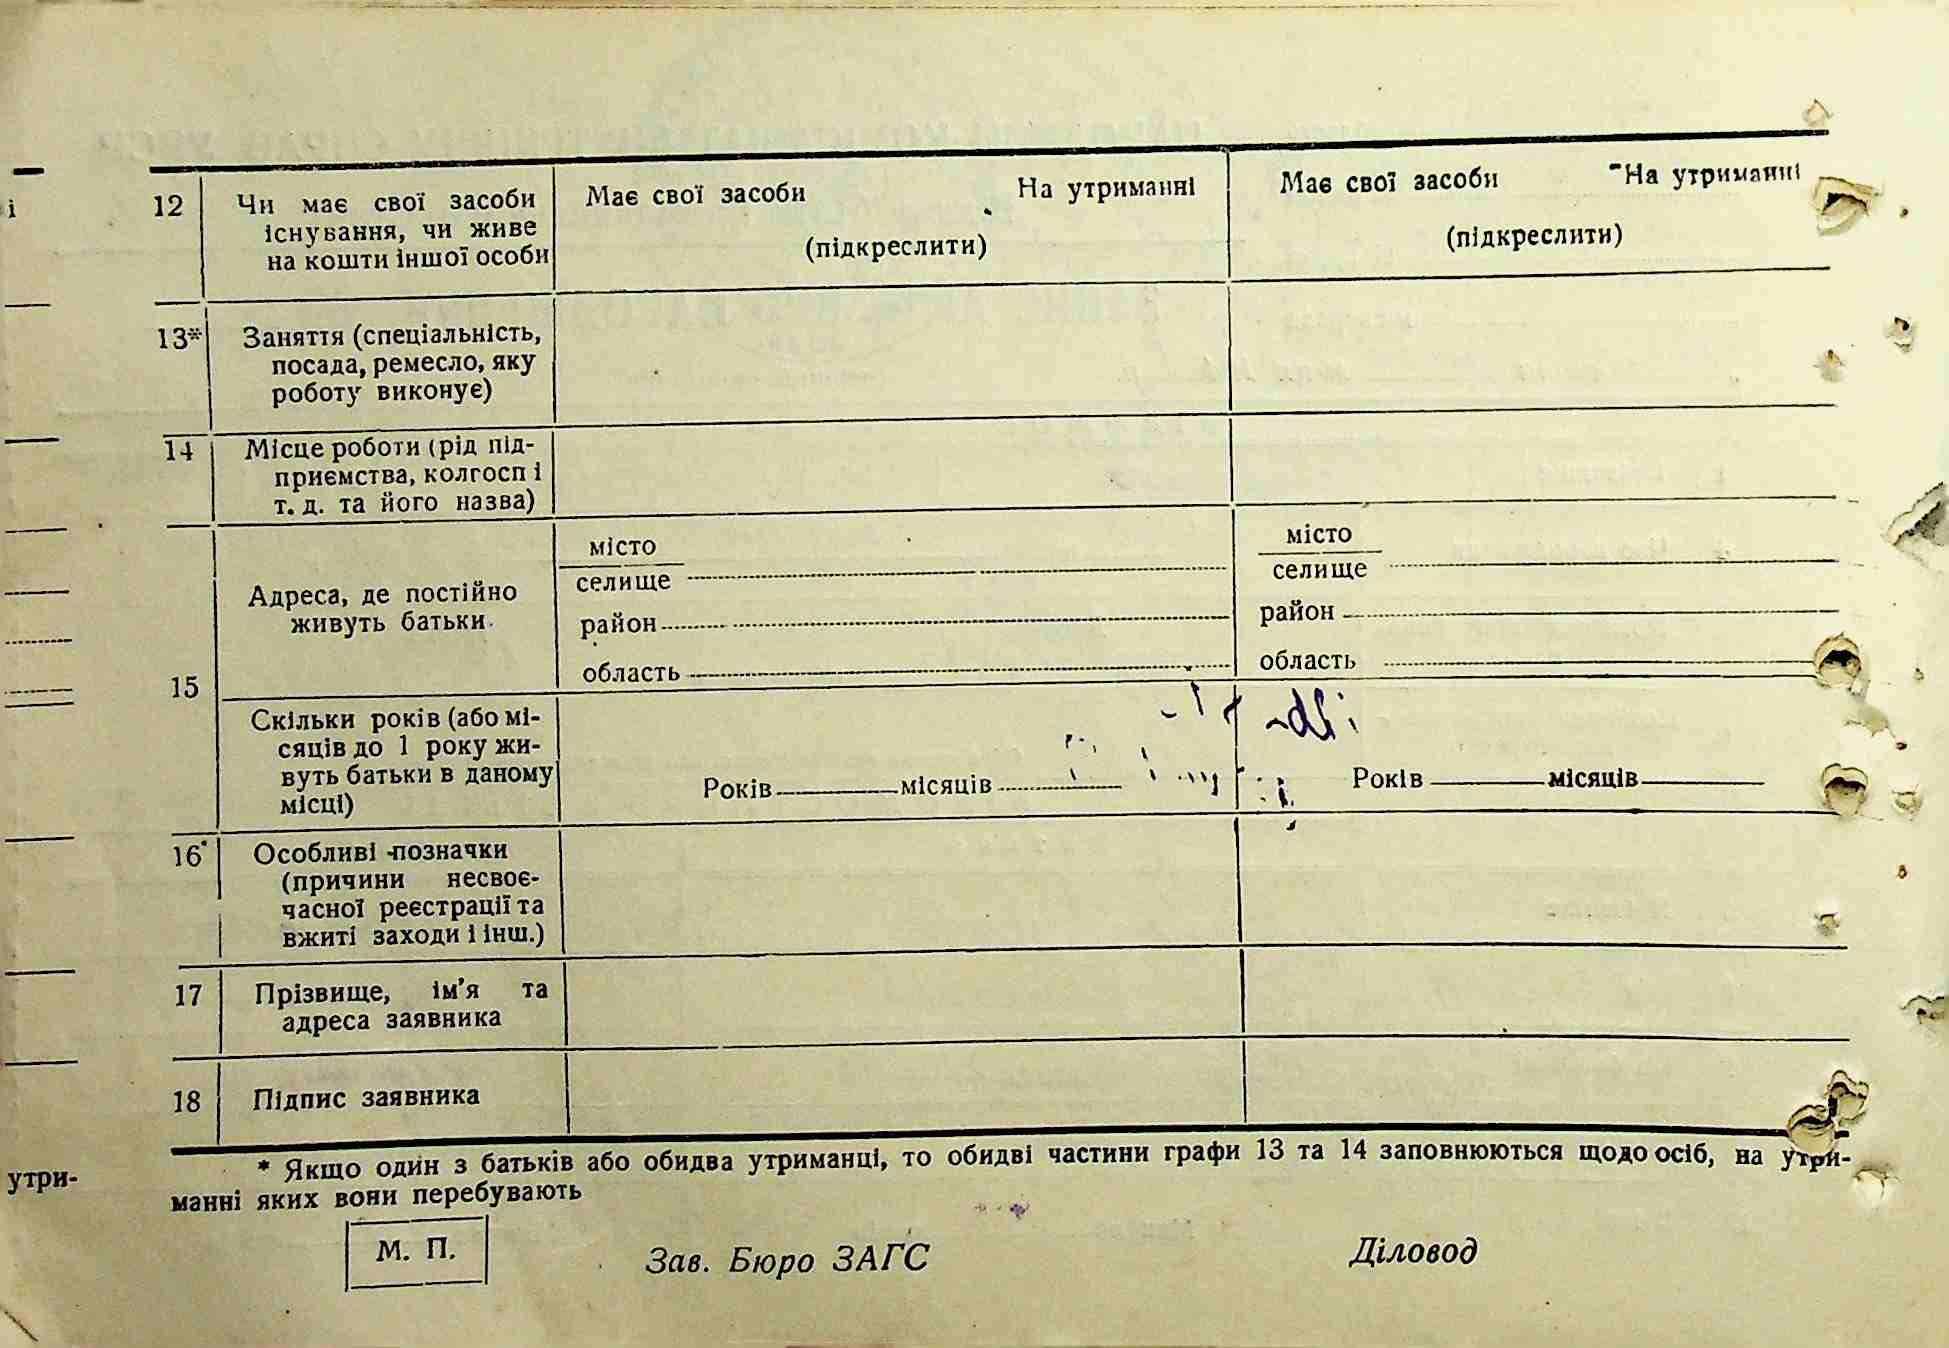 і
12 Чи має свої засоби Має свої засоби На утриманні Має свої засоби На утриманні
існування, чи живе (підкреслити) (підкреслити)
на кошти іншої особи
13* Заняття (спеціальність,
посада, ремесло, яку
роботу виконує)
14 Місце роботи (рід під-
приємства, колгосп і
т. д. та його назва)
місто місто
Адреса, де постійно селище селище
живуть батьки район район
область область
15
Скільки років (або мі-
сяців до 1 року жи-
вуть батьки в даному Років місяців Років місяців
місці)
16* Особливі позначки
(причини несвоє-
часної реєстрації та
вжиті заходи і інш.)
17 Прізвище, ім'я та
адреса заявника
18 Підпис заявника
* Якщо один з батьків або обидва утриманці, то обидві частини графи 13 та 14 заповнюються щодо осіб, на утри-
манні яких вони перебувають
утри-
М. П. Зав. Бюро ЗАГС Діловод